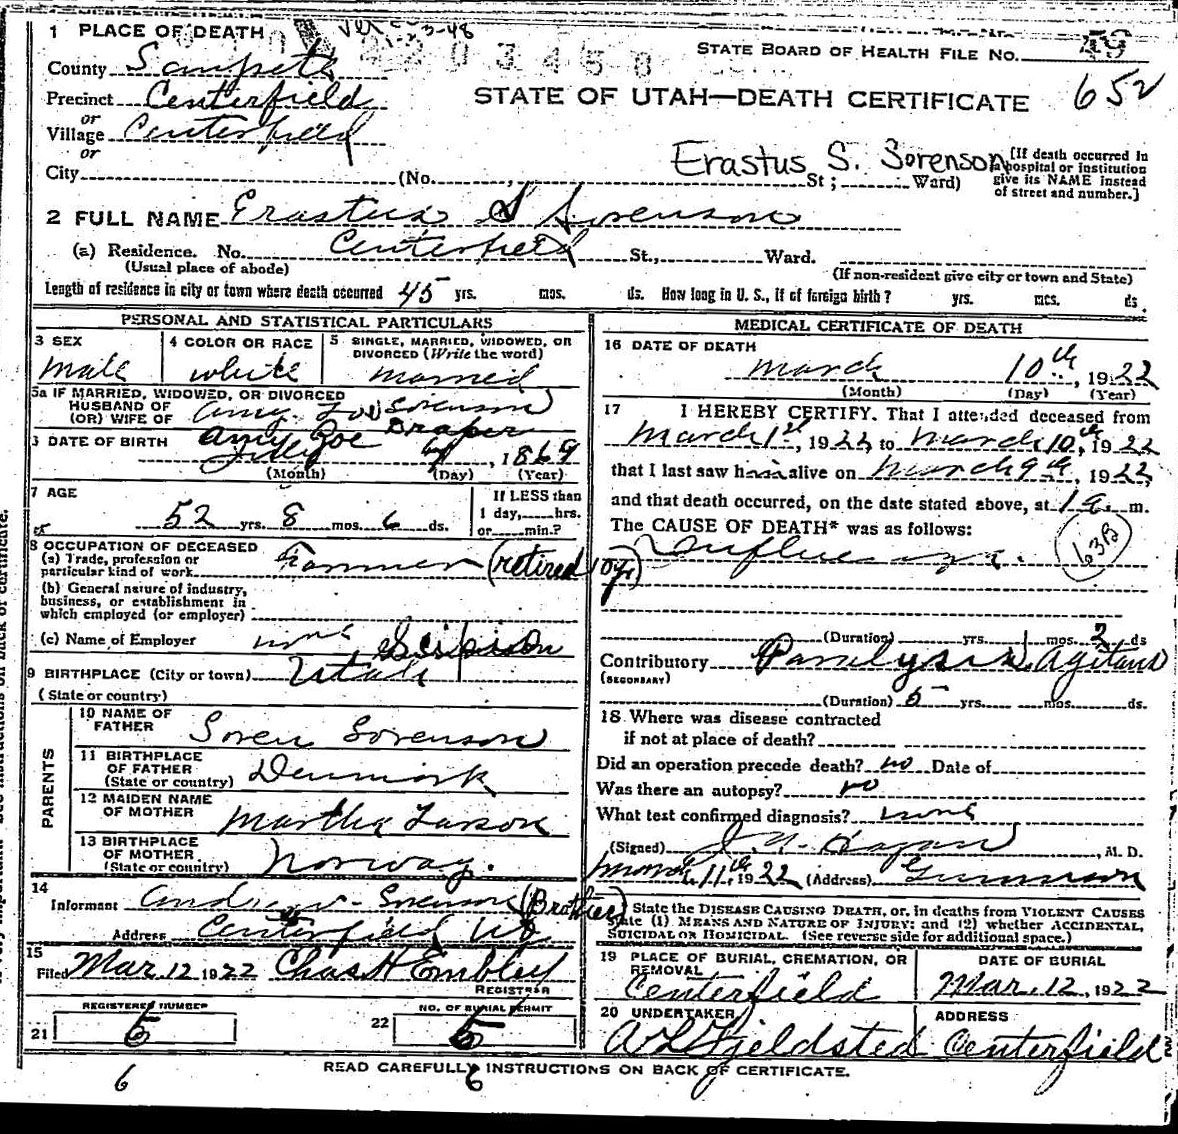 1 PLACE OF DEATH
Ver 5-23-48
2203458
STATE BOARD OF HEALTH FILE NO. 49
County Sanpete
Precinct Centerfield
STATE OF UTAH—DEATH CERTIFICATE 652
or
Village Centerfield
or
City (No. , St; Ward)
Erastus S. Sorenson
[If death occurred in a hospital or institution give its NAME instead of street and number.]
2 FULL NAME Erastus S Sorenson
(a) Residence. No. Centerfield St., Ward.
(Usual place of abode) (If non-resident give city or town and State)
Length of residence in city or town where death occurred 45 yrs. mos. ds. How long in U. S., if of foreign birth? yrs. mos. ds.
PERSONAL AND STATISTICAL PARTICULARS
3 SEX
Male
4 COLOR OR RACE
White
5 SINGLE, MARRIED, WIDOWED, OR DIVORCED (Write the word)
Married
5a IF MARRIED, WIDOWED, OR DIVORCED
HUSBAND OF
(OR) WIFE OF Amy Zoe Sorenson
Amy Zoe Draper
DATE OF BIRTH
July 4, 1869
(Month) (Day) (Year)
7 AGE
52 yrs. 8 mos. 6 ds.
If LESS than
1 day, hrs.
or min.?
8 OCCUPATION OF DECEASED
(a) Trade, profession or
particular kind of work Farmer (retired 10 yr)
(b) General nature of industry,
business, or establishment in
which employed (or employer)
(c) Name of Employer none
Scipio
9 BIRTHPLACE (City or town) Utah
(State or country)
PARENTS
10 NAME OF
FATHER Soren Sorenson
11 BIRTHPLACE
OF FATHER
(State or country) Denmark
12 MAIDEN NAME
OF MOTHER Martha Larson
13 BIRTHPLACE
OF MOTHER
(State or country) Norway.
14
Informant Andrew Sorenson (Brother)
Address Centerfield Ut
15
Filed Mar. 12 1922 Chas H Embley
REGISTRAR
REGISTERED NUMBER
21 5
NO. OF BURIAL PERMIT
22 5
6 6
MEDICAL CERTIFICATE OF DEATH
16 DATE OF DEATH
March 10th, 1922
(Month) (Day) (Year)
17 I HEREBY CERTIFY, That I attended deceased from
March 1st, 1922, to March 10th, 1922
that I last saw him alive on March 9th, 1922
and that death occurred, on the date stated above, at 1 a. m.
The CAUSE OF DEATH* was as follows:
Influenza.
63B
(Duration) yrs. mos. 2 ds
Contributory Paralysis Agitans
(SECONDARY)
(Duration) 5 yrs. mos ds.
18 Where was disease contracted
if not at place of death?
Did an operation precede death? no Date of
Was there an autopsy? no
What test confirmed diagnosis? none
(Signed) J. N. Hagan, M. D.
March 11th 1922 (Address) Gunnison
State the DISEASE CAUSING DEATH, or, in deaths from VIOLENT CAUSES
state (1) MEANS AND NATURE OF INJURY; and (2) whether ACCIDENTAL,
SUICIDAL OR HOMICIDAL. (See reverse side for additional space.)
19 PLACE OF BURIAL, CREMATION, OR
REMOVAL
Centerfield
DATE OF BURIAL
Mar. 12, 1922
20 UNDERTAKER
A L Fjeldsted
ADDRESS
Centerfield
READ CAREFULLY INSTRUCTIONS ON BACK OF CERTIFICATE.